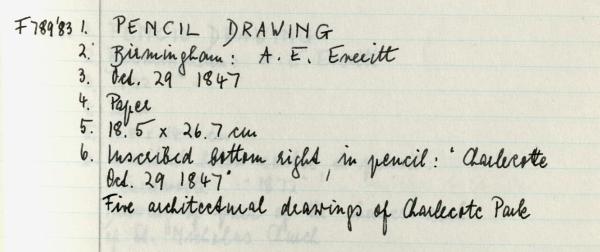 F789'83 1. PENCIL DRAWING
2. Birmingham: A. E. Everitt
3. Oct. 29 1847
4. Paper
5. 18.5 x 26.7 cm
6. Inscribed bottom right, in pencil: 'Charlecotte
Oct. 29 1847'
Five architectural drawings of Charlecote Park